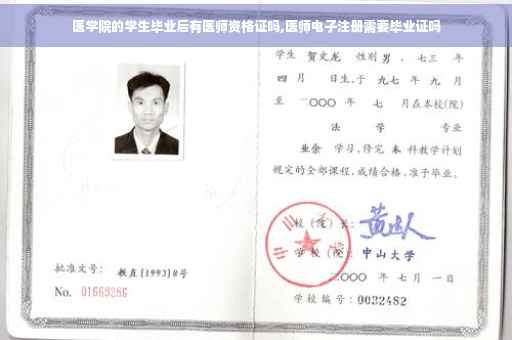 医学院的学生毕业后有医师资格证吗,医师电子注册需要毕业证吗
学生 贺文龙 性别 男 、七三 年
四 月 日生,于 九七 年 九 月
至 二〇〇〇 年 七 月在本校(院)
法 学 专业
业余 学习,修完 本 科教学计划
规定的全部课程,成绩合格,准予毕业。
校(院)长:
学校(院): 中山大学
二〇〇〇 年 七 月 一 日
批准文号: 教直[1993]8号
No. 01669286
学校编号: 0032482